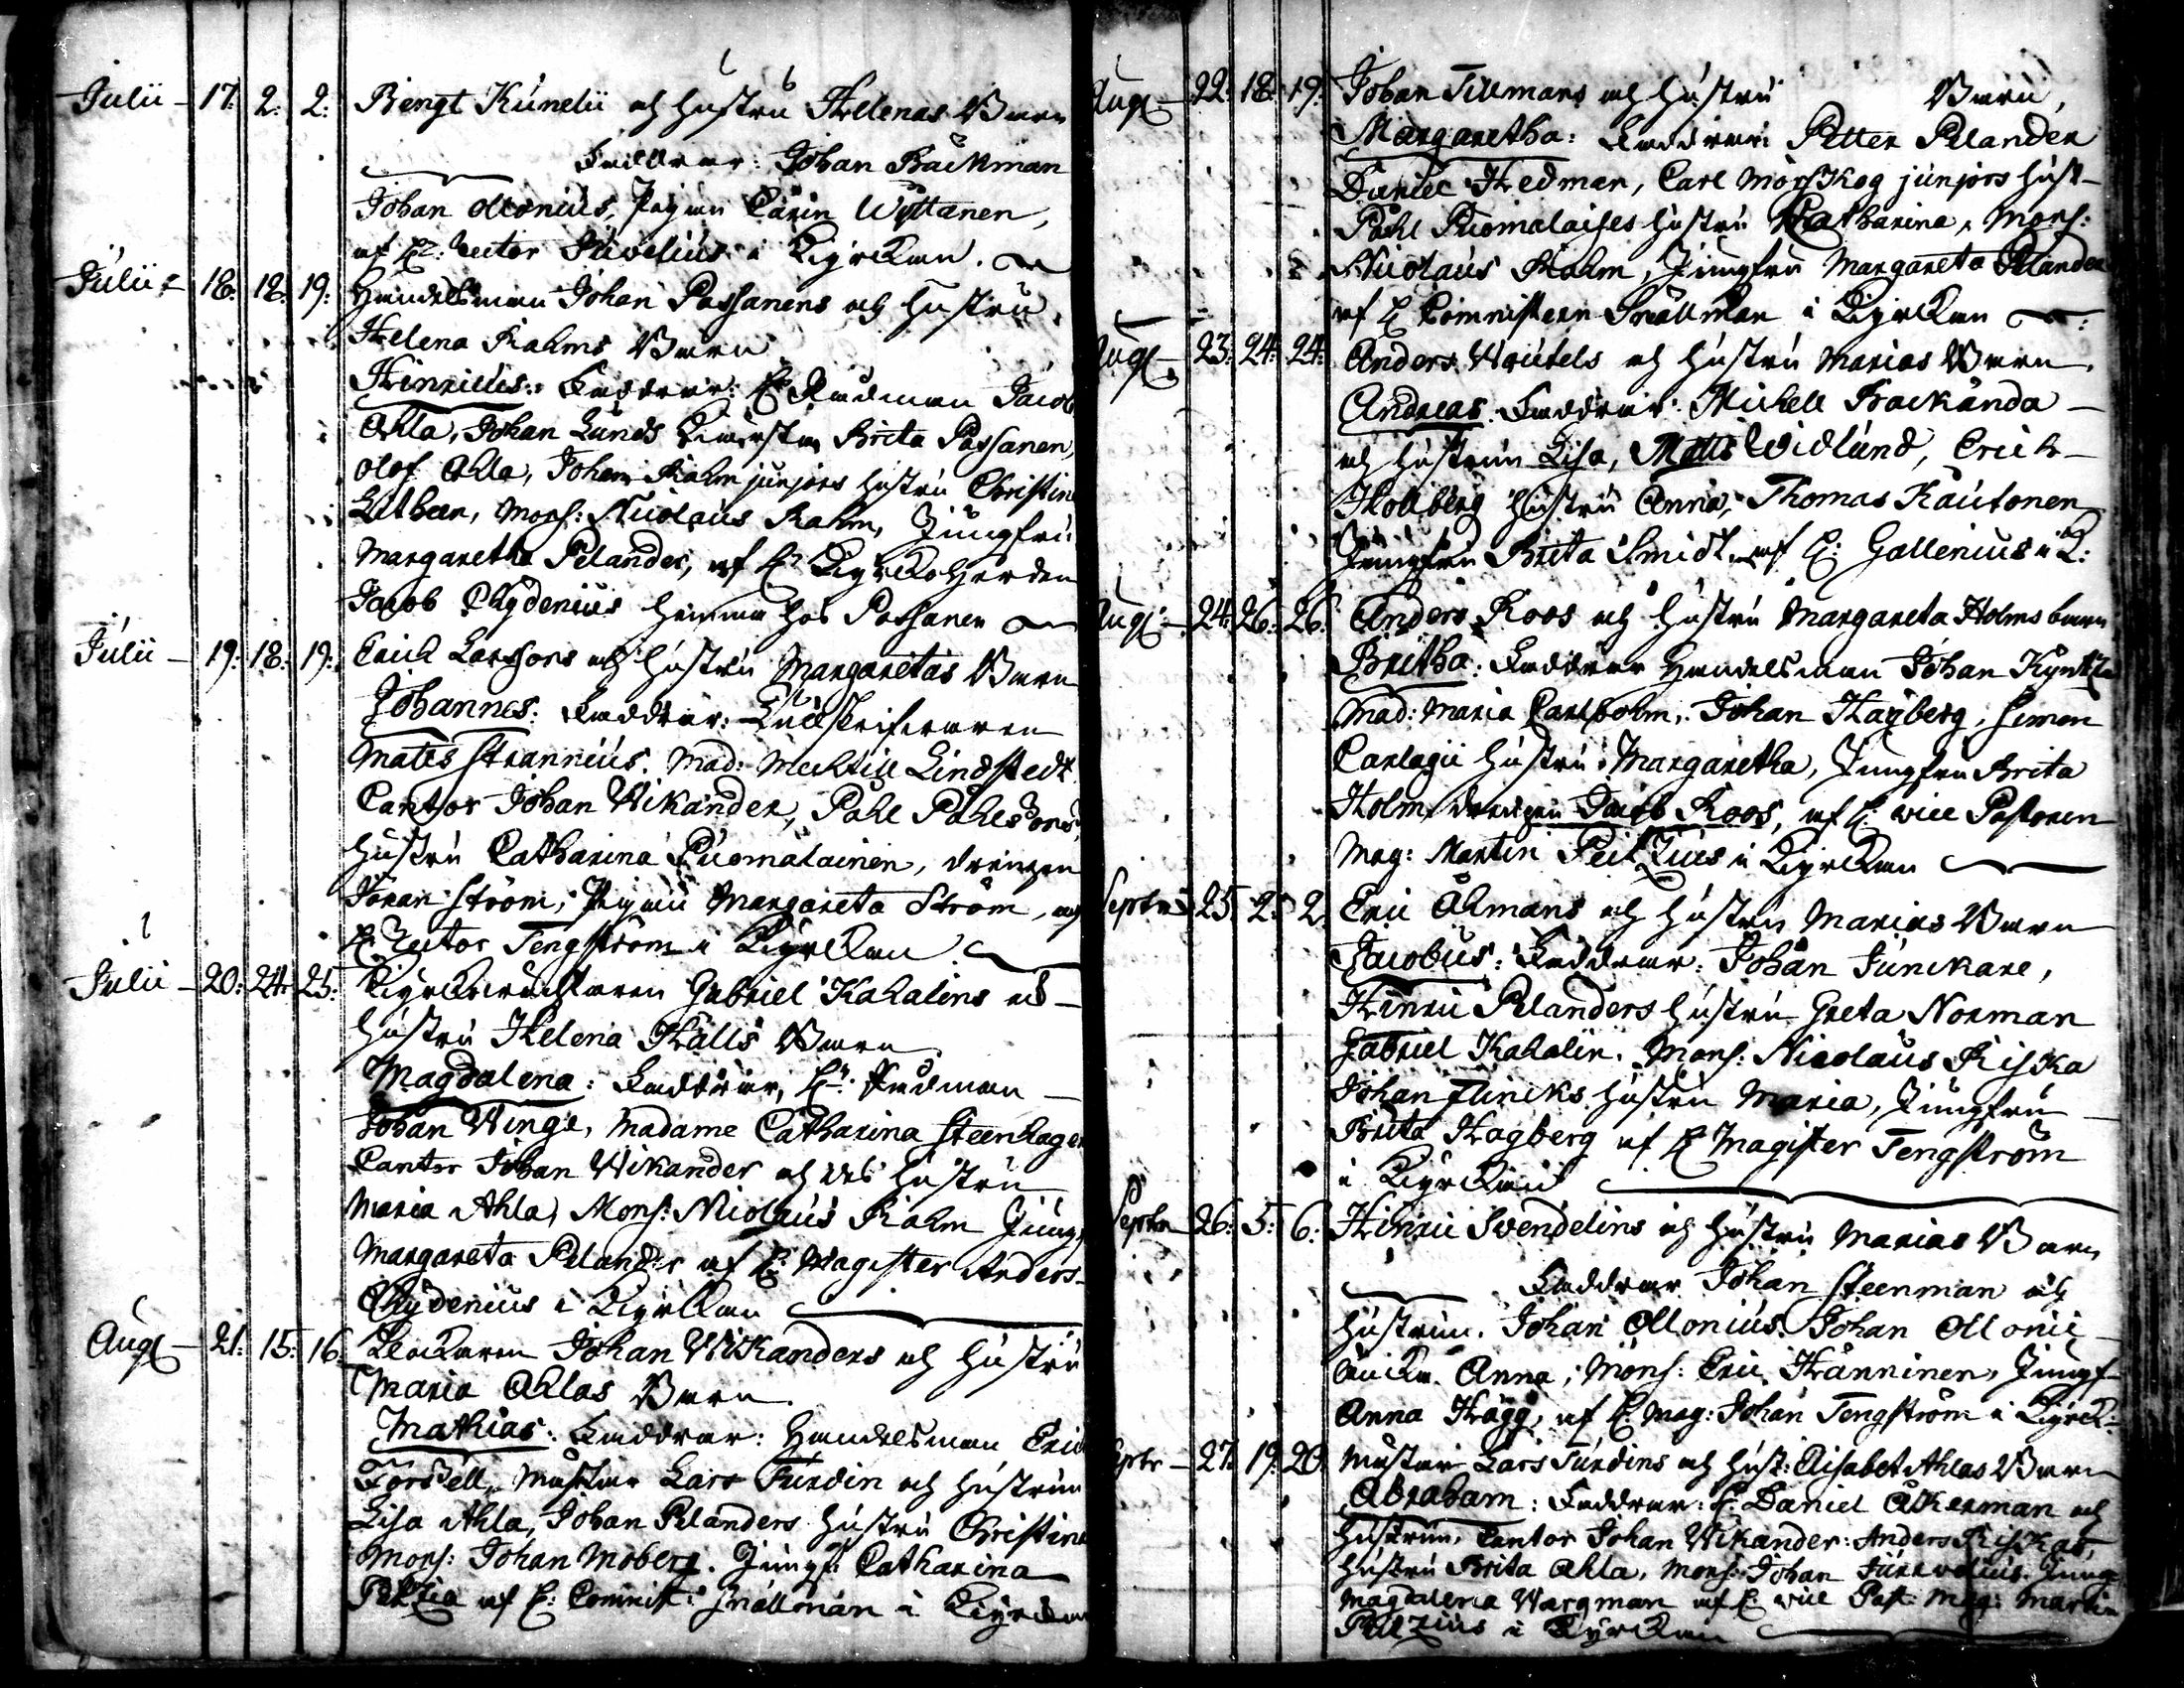 Julii - 17: 2: 2: Bengt Kunelii och hustru Helenas Barn
Faddrar: Johan Backman
Johan Ollonius, Pigan Carin Wyttanen,
af H: Rector Juvelius i Kyrckan.
Julii - 18: 18: 19: Handelsman Johan Passanens och hustru
Helena Rahms Barn
Henricus: Faddrar: H Rådman Jacob
Ahla, Johan Lunds Brita Passanen,
Olof Ahla, Johan Rahm junjors hustru Christina
Litheen, Mons: Nicolaus Rahm, Jungfru
Margaretha Pelander, af H Kyrckoherden
Jacob Chydenius hemma hos Passanen
Julii - 19: 18: 19: Erich Larssons och hustru Margaretas Barn
Johannes: Faddrar:
Mates Strannius. Mad: Mechtill Lindstedt
Cantor Johan Wikander, Påhl Påhlssons
hustru Catharina Puomalainen, drengen
Johan Ström, Pigan Margareta Ström, af
H: Rector Tengström i Kyrckan.
Julii - 20: 24: 25: Kyrckiowächtaren Gabriel Kahalins och
hustru Helena Hälls Barn
Magdalena: Faddrar, H: Rådman
Johan Winge, Madame Catharina Steenhagen
Cantor Johan Wikander och des hustru
Maria Ahla, Mons: Nicolaus Rahm Jungf
Margareta Pelander af H: Magister Anders
Chydenius i Kyrckan
Aug - 21: 15: 16 Klockaren Johan Wikanders och hustru
Maria Ahlas Barn.
Mathias: Faddrar: Handelsman Eric
Forssell, Mästar Lars Jurdin och hustrun
Lisa Ahla, Johan Pelanders hustru Christina
Mons: Johan Moberg. Jungf: Catharina
Peitzia af H: Commist: Snällman i Kyrckan
Aug - 22: 18: 19: Johan Tillmans och hustru Barn,
Margaretha: Faddrar: Petter Pelander
Daniel Hedman, Carl Mörskog junjors hust-
Påhl Puomalaises hustru Catharina, Mons:
Nicolaus Rahm, Jungfru Margareta Pelander
af H Comministern Snällman i Kyrckan
Aug - 23: 24: 24: Anders Wrutels och hustru Marias Barn.
Andreas. Faddrar: Michell Brackanda -
och hustrun Lisa, Matts Widlund, Erich -
Hollberg hustru Anna, Thomas Kautonen
Jungfru Brita Smidt af H: Gallenius i K:
Aug: - 24: 26: 26: Anders Roos och hustru Margareta Holms barn
Britha: Faddrar Handelsman Johan Kyntzel
Mad: Maria Carlholm, Johan Hagberg, Simon
Carlagii hustru Margaretha, Jungfru Brita
Holm, drengen Jacob Roos, af H: vice Pastoren
Mag: Martin Peitzius i Kyrckan
Septr 25 2: 2 Eric Åkmans och hustru Marias Barn
Jacobus: Faddrar: Johan Junckare,
Hinric Pelanders hustru Greta Norman
Gabriel Kahalin. Mons: Nicolaus Riska
Johan Flincks hustru Maria, Jungfru -
Brita Hagberg af H Magister Tengström
i Kyrckan
Septr 26: 5: 6: Hinric Svendelins och hustru Marias Barn
Faddrar Johan Steenman och
hustrun. Johan Ollonius. Johan Ollonii
Anna, Mons: Eric Hänninen, Jungf
Anna Hägg, af H: Mag: Johan Tengström i Kyrck:
Septr - 27: 19: 20 Mästar Lars Jurdins och hust: Elisabet Ahlas Barn
Abraham: Faddrar: H: Daniel Åkerman och
hustrun, Cantor Johan Wikander: Anders Riskas
hustru Brita Ahla, Mons: Johan Jungf
Magdalena Wargman af H: vice Past: Mag: Martin
Peitzius i Kyrckan